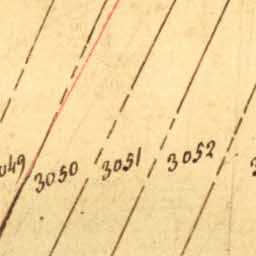 3050
3051
3052